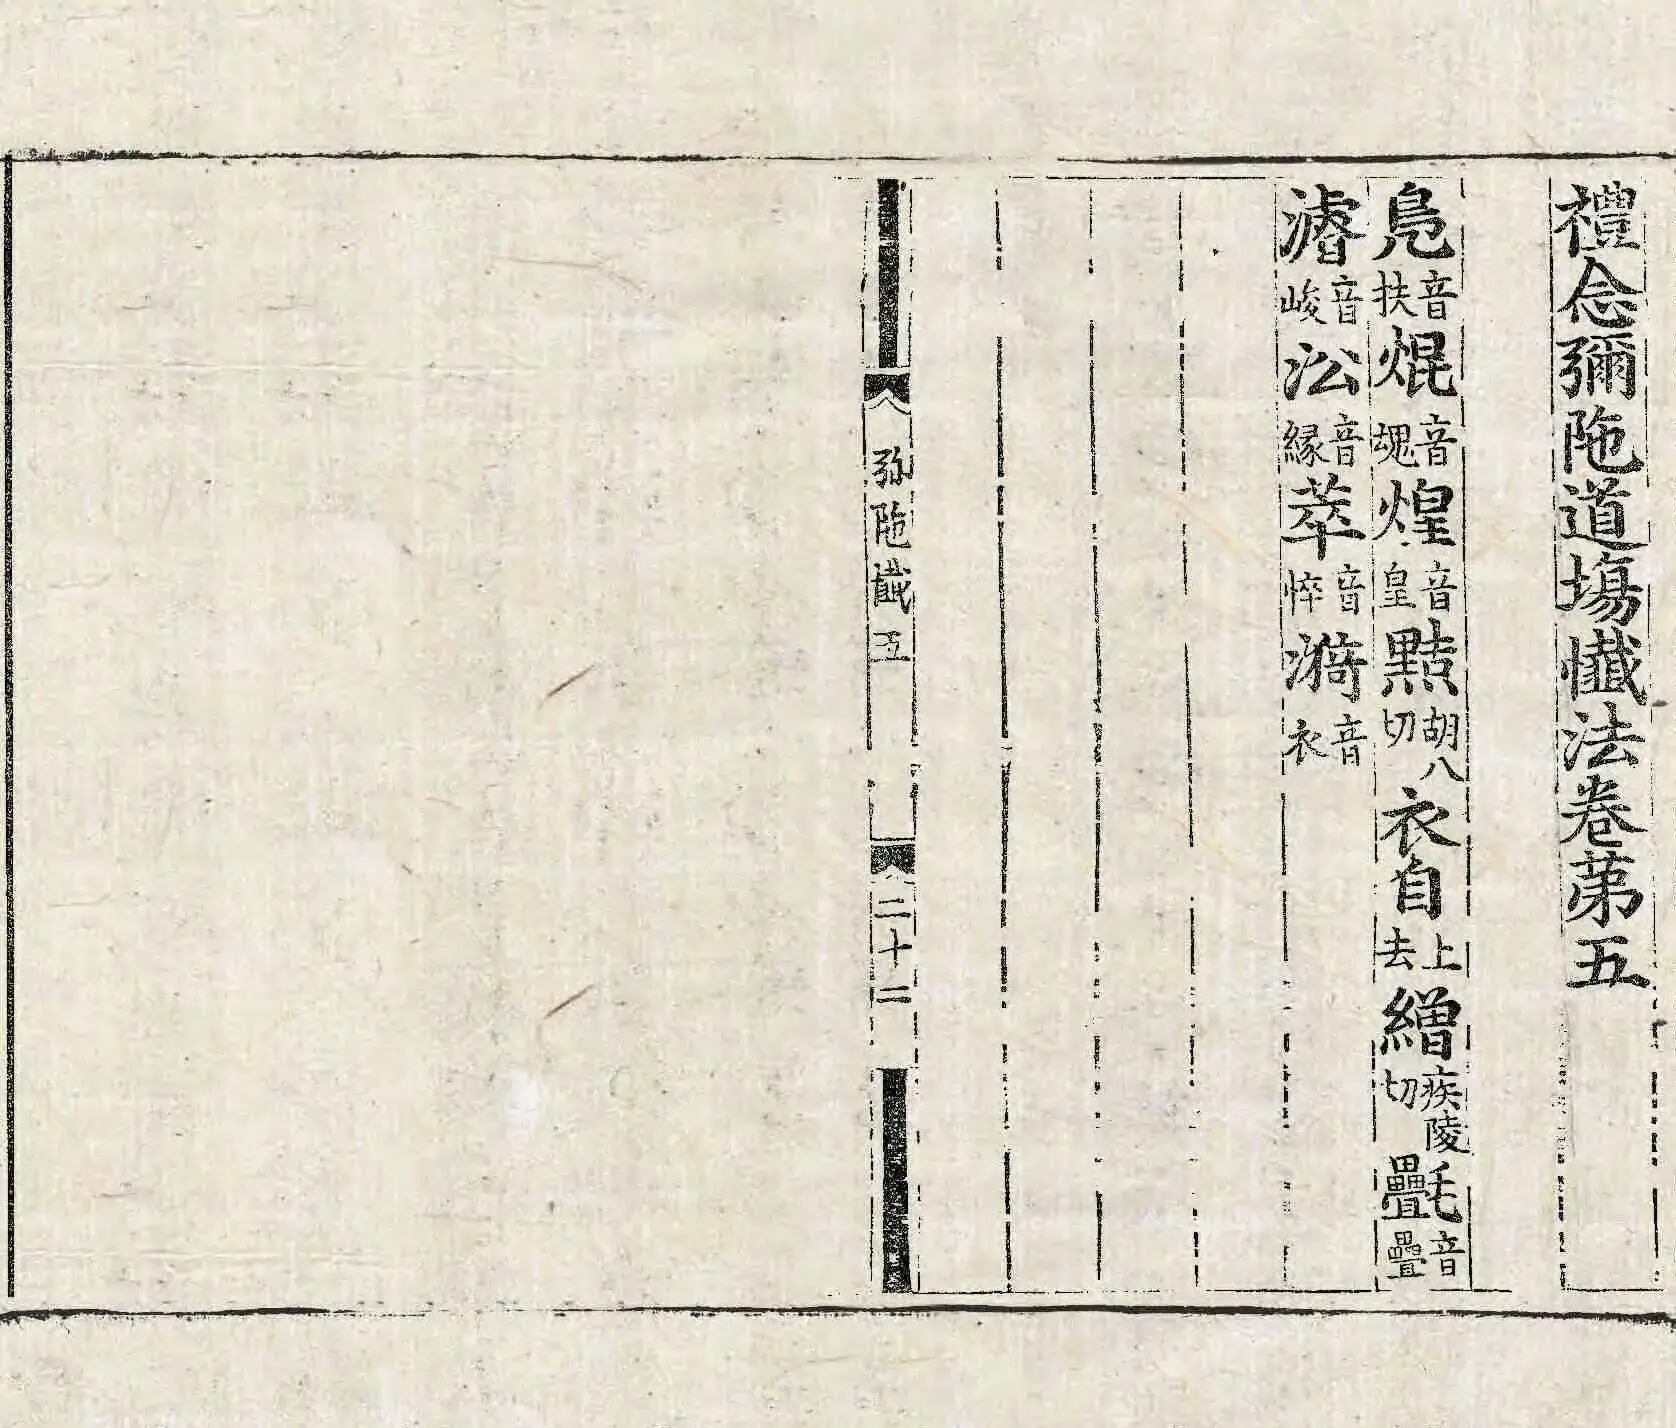 禮念彌陁道塲懺法卷苐五
鳬音扶焜音魂煌音皇黠胡八切衣自上去繒疾陵切氎音疊
濬音峻㳂音縁萃音悴漪音衣
弥陁懺五 二十二